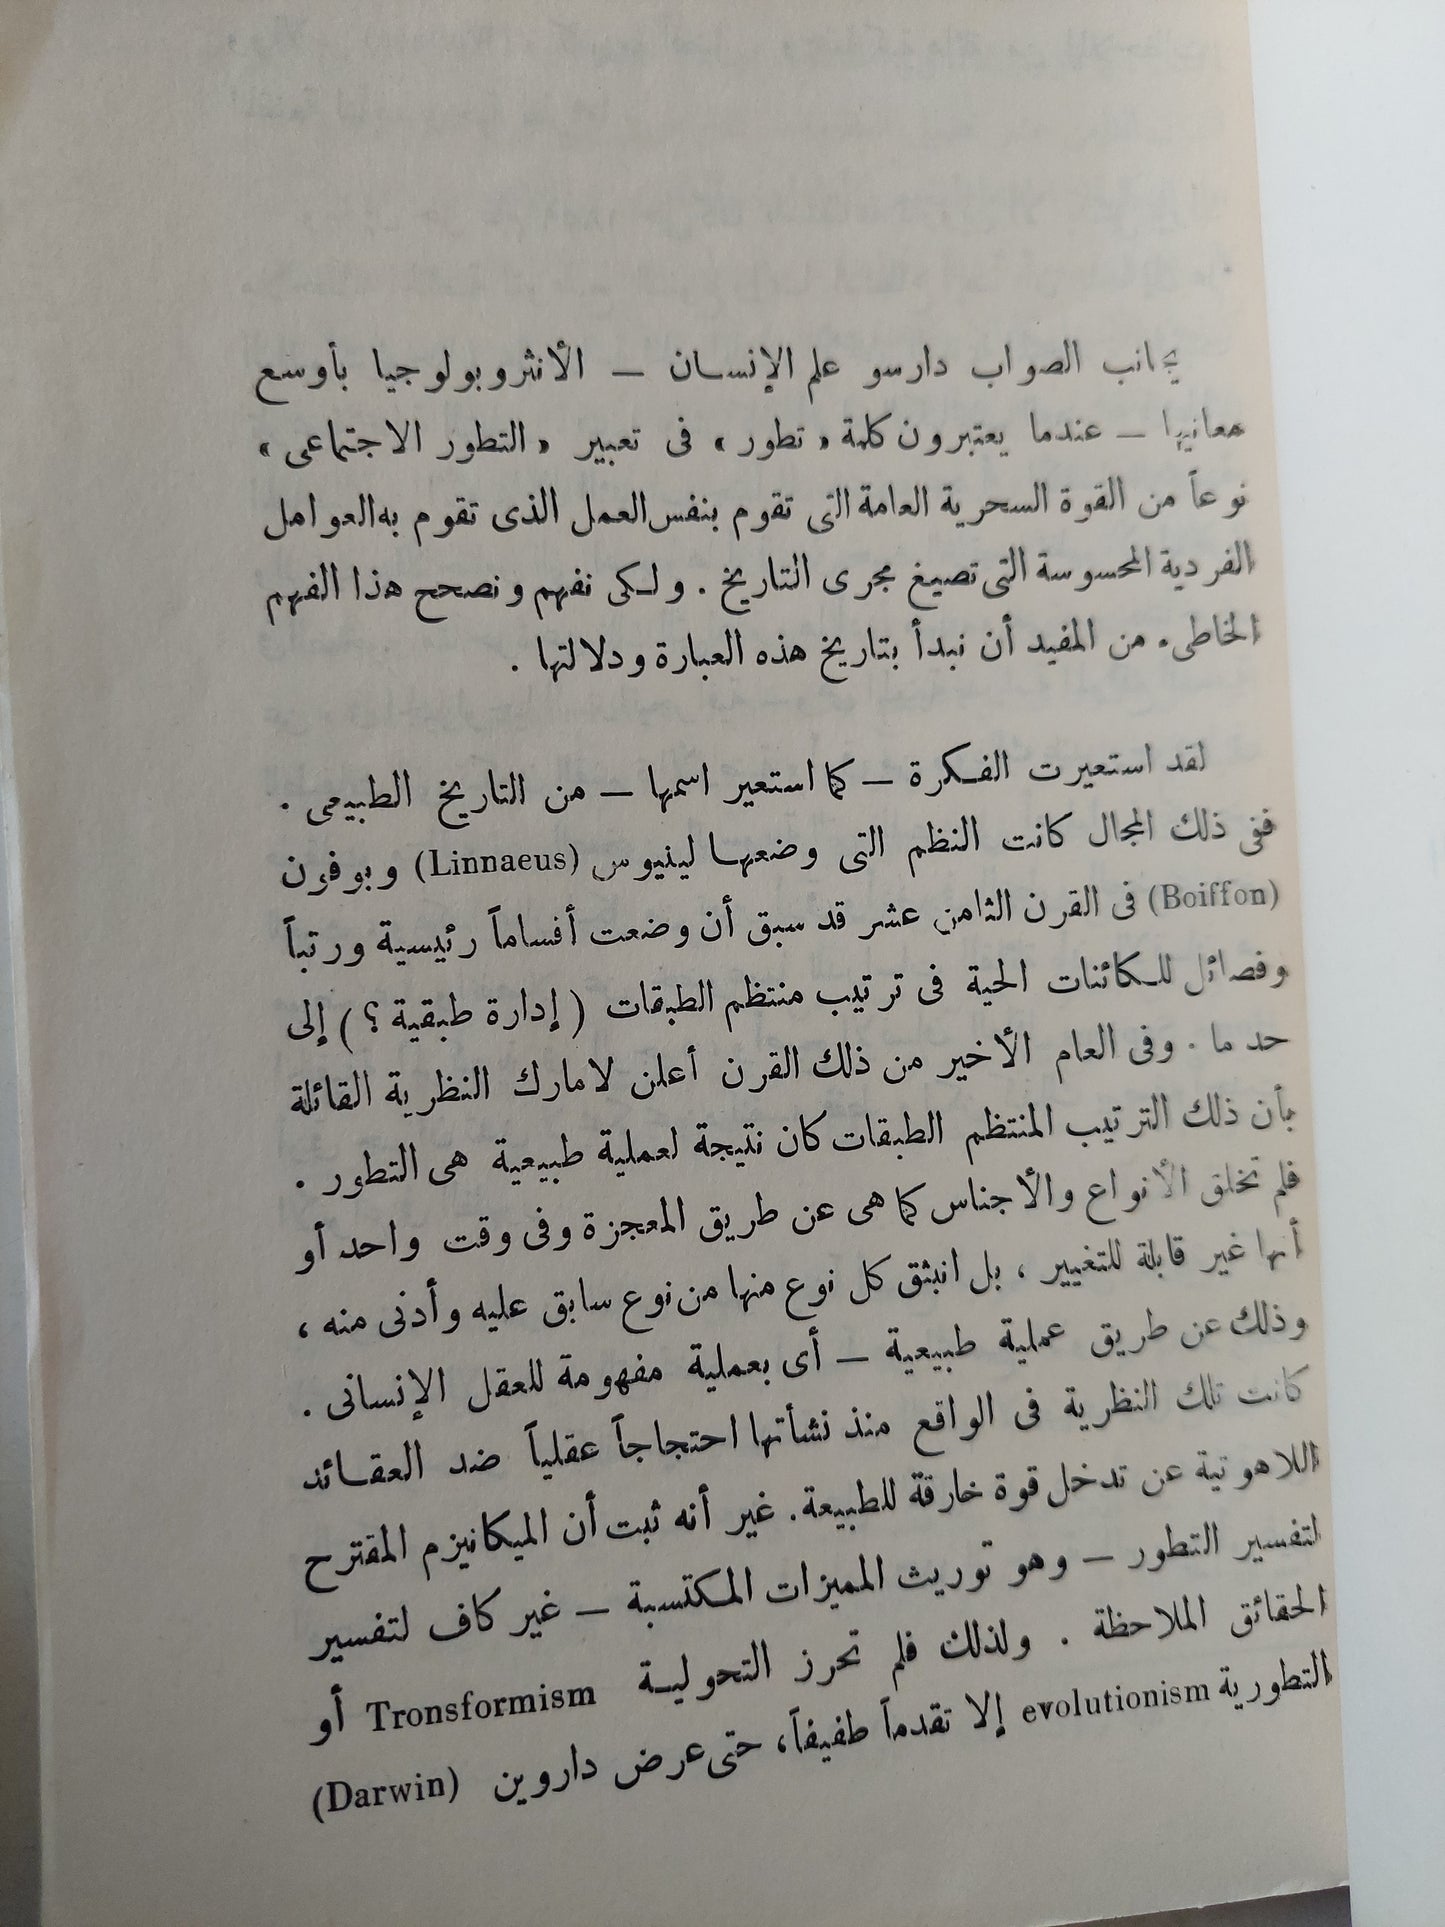 يجانب الصواب دارسو علم الإنسان – الأنثروبولوجيا بأوسع
معانيها – عندما يعتبرون كلمة « تطور » فى تعبير « التطور الاجتماعى »
نوعاً من القوة السحرية العامة التى تقوم بنفس العمل الذى تقوم به العوامل
الفردية المحسوسة التى تصيغ مجرى التاريخ . ولكى نفهم ونصحح هذا الفهم
الخاطىء من المفيد أن نبدأ بتاريخ هذه العبارة ودلالتها .
لقد استعيرت الفكرة – كما استعير اسمها – من التاريخ الطبيعى .
ففى ذلك المجال كانت النظم التى وضعها لينيوس (Linnaeus) وبوفون
(Boiffon) فى القرن الثامن عشر قد سبق أن وضعت أقساماً رئيسية ورتباً
وفصائل للكائنات الحية فى ترتيب منتظم الطبقات ( إدارة طبقية ؟ ) إلى
حد ما . وفى العام الأخير من ذلك القرن أعلن لامارك النظرية القائلة
بأن ذلك الترتيب المنتظم الطبقات كان نتيجة لعملية طبيعية هى التطور .
فلم تخلق الأنواع والأجناس كما هى عن طريق المعجزة وفى وقت واحد أو
أنها غير قابلة للتغيير ، بل انبثق كل نوع منها من نوع سابق عليه وأدنى منه ،
وذلك عن طريق عملية طبيعية – أى بعملية مفهومة للعقل الإنسانى .
كانت تلك النظرية فى الواقع منذ نشأتها احتجاجاً عقلياً ضد العقائد
اللاهوتية عن تدخل قوة خارقة للطبيعة. غير أنه ثبت أن الميكانيزم المقترح
لتفسير التطور – وهو توريث المميزات المكتسبة – غير كاف لتفسير
الحقائق الملاحظة . ولذلك فلم تحرز التحولية Tronsformism أو
التطورية evolutionism إلا تقدماً طفيفاً، حتى عرض داروين (Darwin)